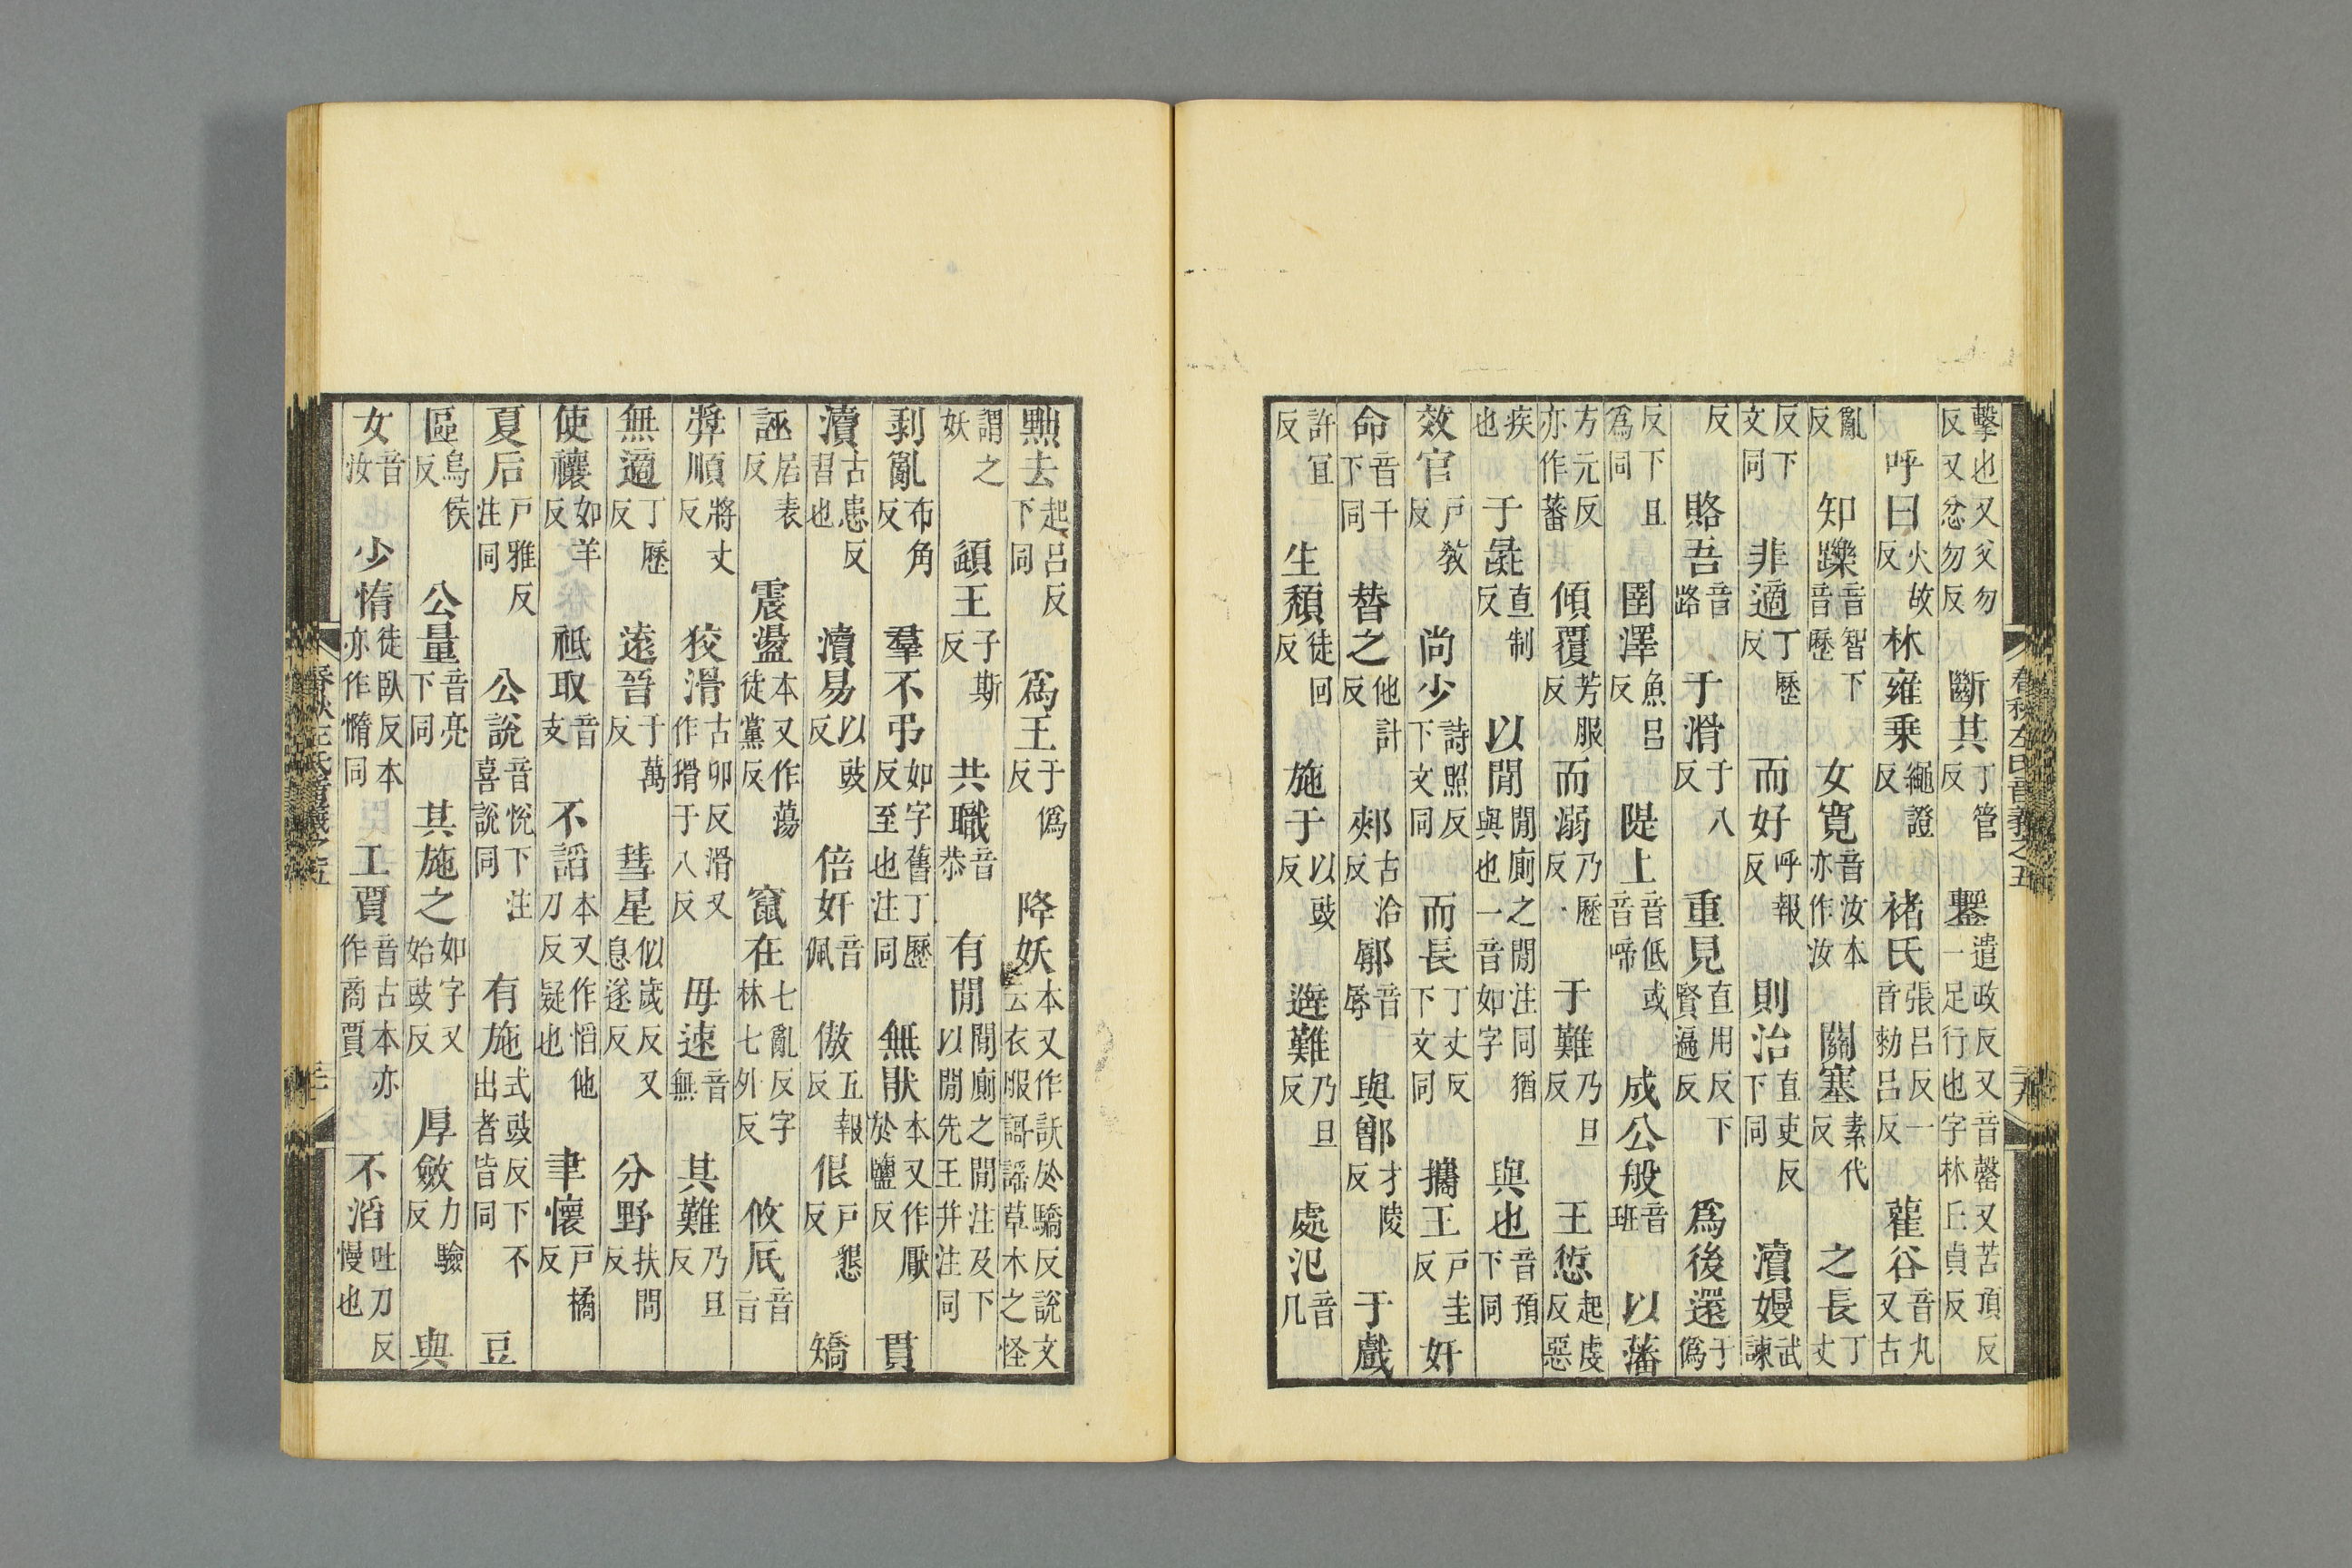 擊也又父勿反又忿勿反斷其丁管反鑋遣政反又音罄又苦頂反一足行也字林丘貞反
呼曰火故反林雍乗繩證反褚氏張呂反一音勑呂反雚谷音丸又古
亂反知躒音智下音歷女寬音汝本亦作汝關塞素代反之長丁丈
反下文同非適丁歷反而好呼報反則治直吏反下同瀆嫚武諫
反賂吾音路于滑于八反重見直用反下賢遍反爲後還于僞
反下且爲同圉澤魚呂反隄上音低或音啼成公般音班以藩
方元反亦作蕃傾覆芳服反而溺乃歷反于難乃旦反王愆起虔反惡
疾也于彘直制反以閒閒廁之閒注同猶與也一音如字與也音預下同
效官戶教反尚少詩照反下文同而長丁丈反下文同攜王戶圭反奸
命音干下同替之他計反郟古洽反鄏音辱與鄫才陵反于戲
許宜反生頹徒回反施于以豉反避難乃旦反處氾音凡
黜去起呂反下同爲王于僞反降妖本又作訞於驕反說文云衣服謌謠草木之怪
謂之妖頿王子斯反共職音恭有閒閒廁之閒注及下以閒先王幷注同
剥亂布角反羣不弔如字舊丁歷反至也注同無猒本又作厭於鹽反貫
瀆古患反習也瀆易以豉反倍奸音佩傲五報反佷戶懇反矯
誣居表反震盪本又作蕩徒黨反竄在七亂反字林七外反攸厎音旨
弉順將丈反狡滑古卯反滑又作猾于八反毋速音無其難乃旦反
無適丁歷反遠晉于萬反彗星似歲反又息遂反分野扶問反
使禳如羊反祗取音支不謟本又作慆他刀反疑也聿懷戶橘反
夏后戶雅反注同公說音悅下注喜說同有施式豉反下不出者皆同豆
區烏侯反公量音亮下同其施之如字又始豉反厚斂力驗反與
女音汝少惰徒臥反本亦作憜同工賈音古本亦作商賈不滔吐刀反慢也
春秋左氏音義之五